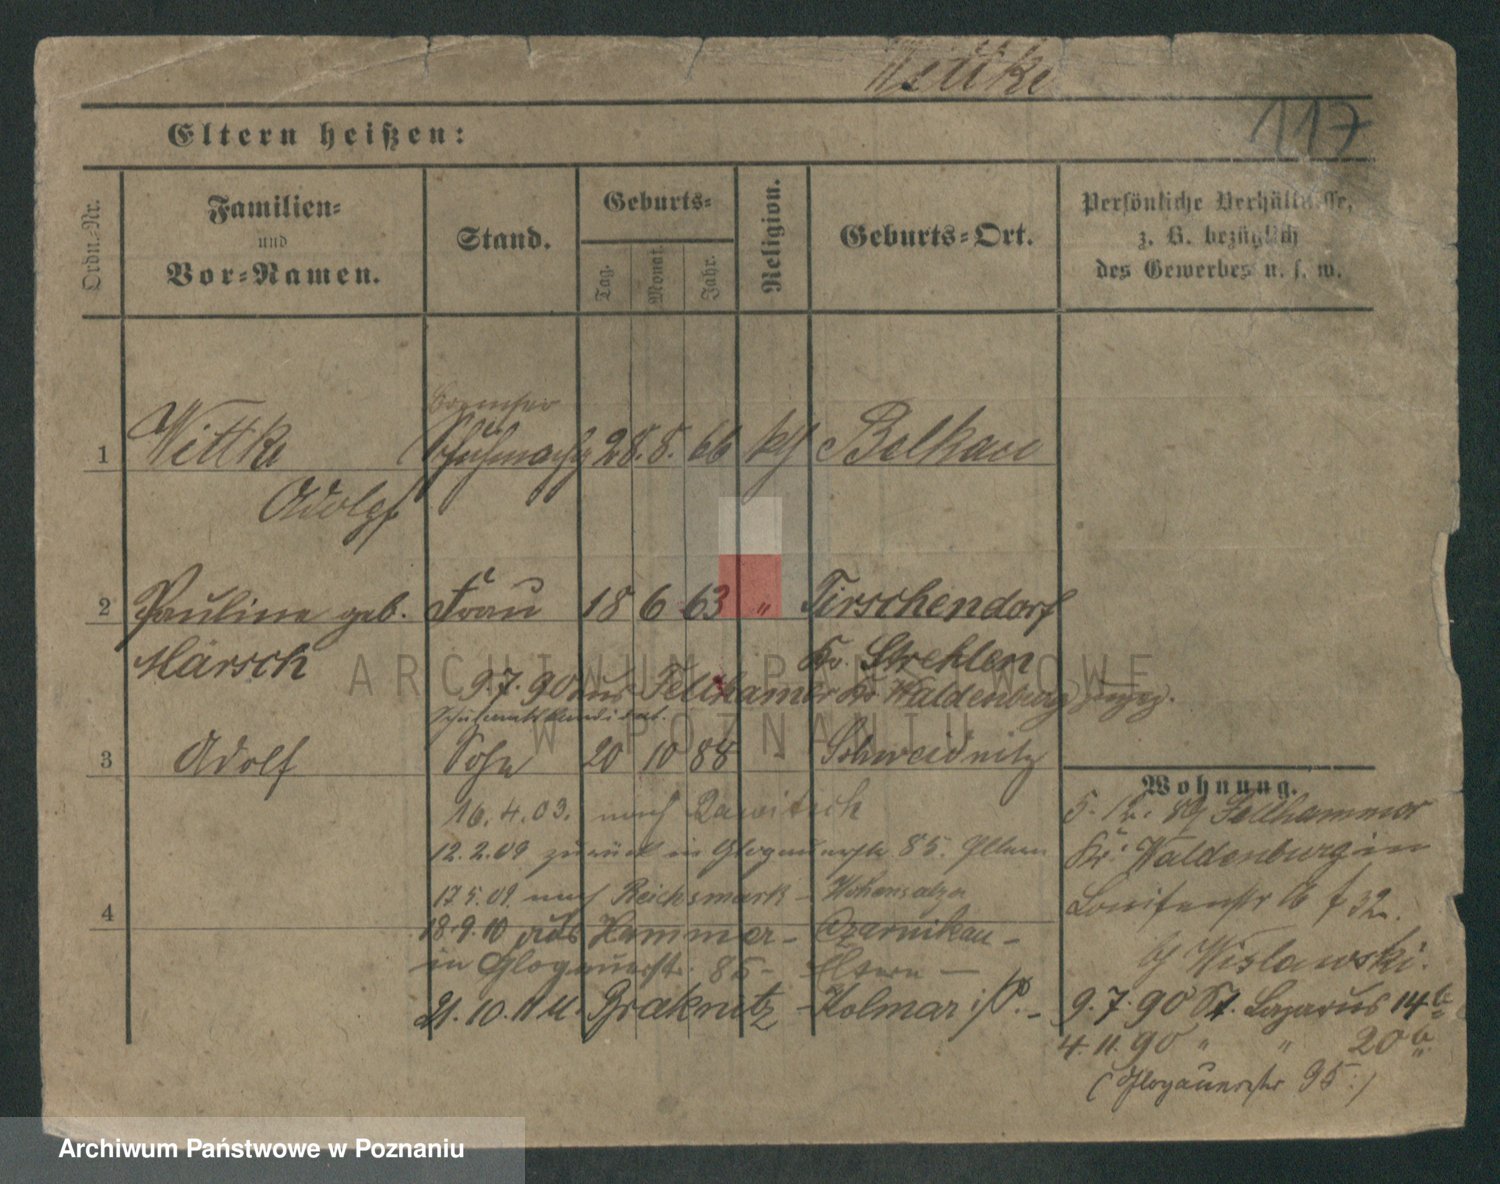 Wittke
117
Eltern heißen:
Ordn.-Nr.
Familien-
und
Vor-Namen.
Stand.
Geburts-
Tag.
Monat.
Jahr.
Religion.
Geburts-Ort.
Persönliche Verhältnisse,
z. B. bezüglich
des Gewerbes u. s. w.
1 Wittke Schuhmach 28. 8. 66 kth Belkau
Adolf
2 Pauline geb. Frau 18 6 63 " Tirschendorf
Märsch Kr. Strehlen
9.7.90 aus Fellhamer Kr. Waldenburg
Schulamtskandidat.
3 Adolf Sohn 20 10 88 Schweidnitz
16.4.03. nach Rawitsch
12.2.09 zurück in Glogauerstr 85. Eltern
4
17.5.09. nach Reichsmark - Hohensalza
18.9.10 aus Hammer - Czarnikau -
in Glogauerstr. 85 - Eltern -
21.10.11 n. Braknitz - Kolmar i/P. -
Wohnung.
5. 12. 89 Fellhammer
Kr. Waldenburg in
Louisenstr
b/ Wislawski.
9.7.90 St. Lazarus 14
4.11.90 " " 20
(Glogauerstr 95.)
ARCHIWUM PAŃSTWOWE
W POZNANIU
Archiwum Państwowe w Poznaniu